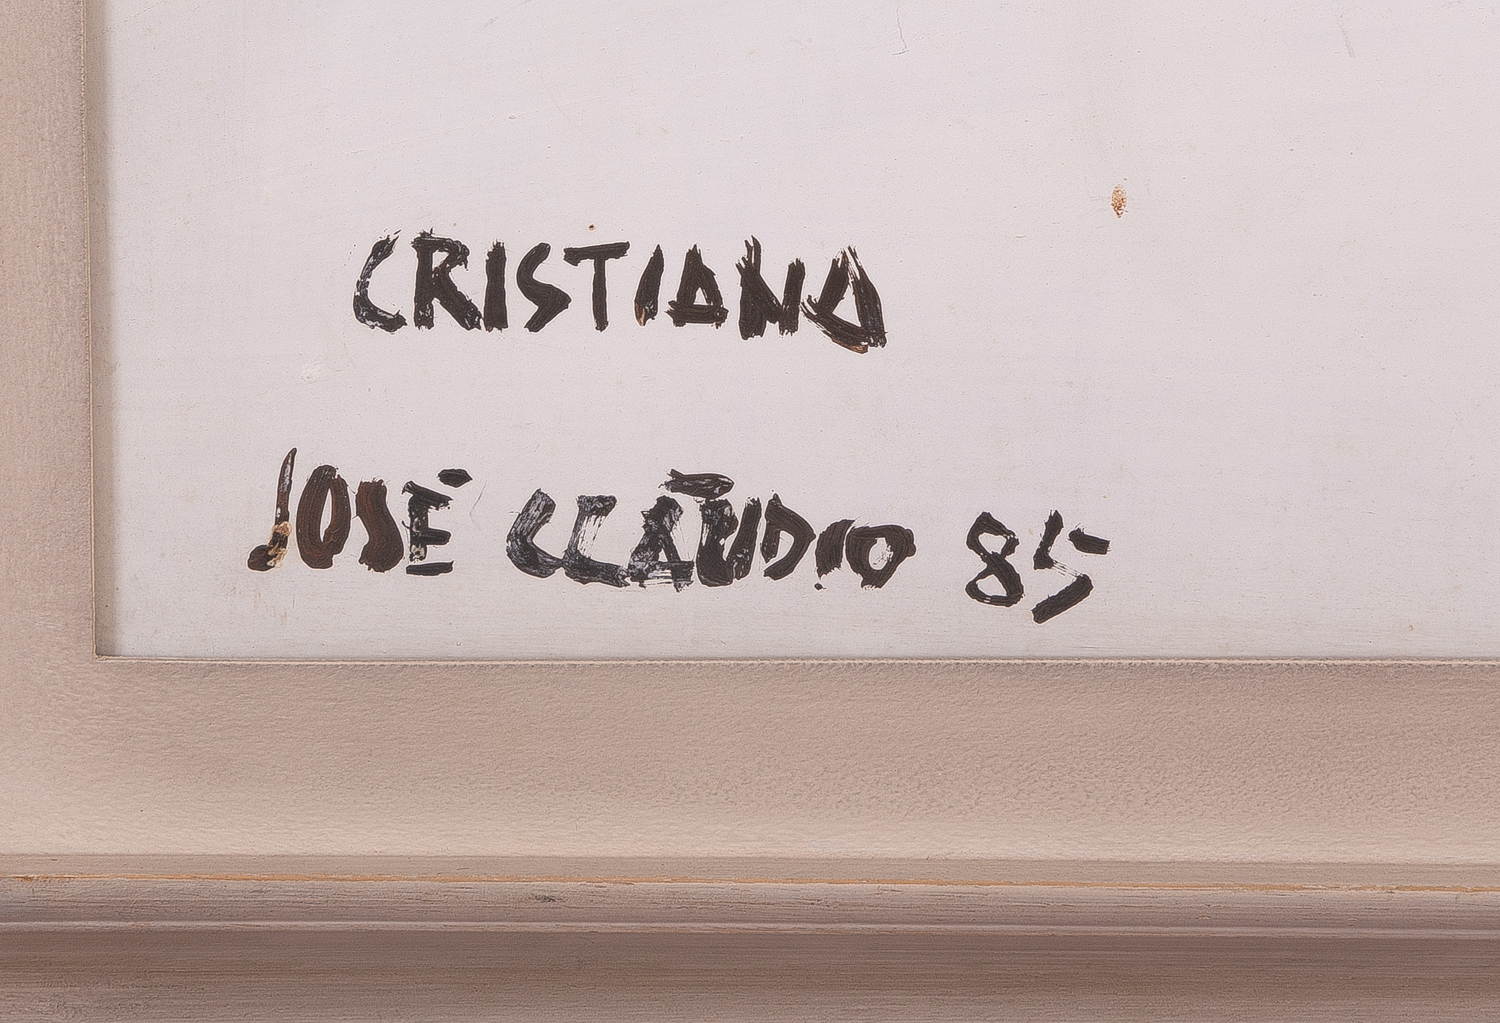 CRISTIANA
JOSÉ CLÁUDIO 85